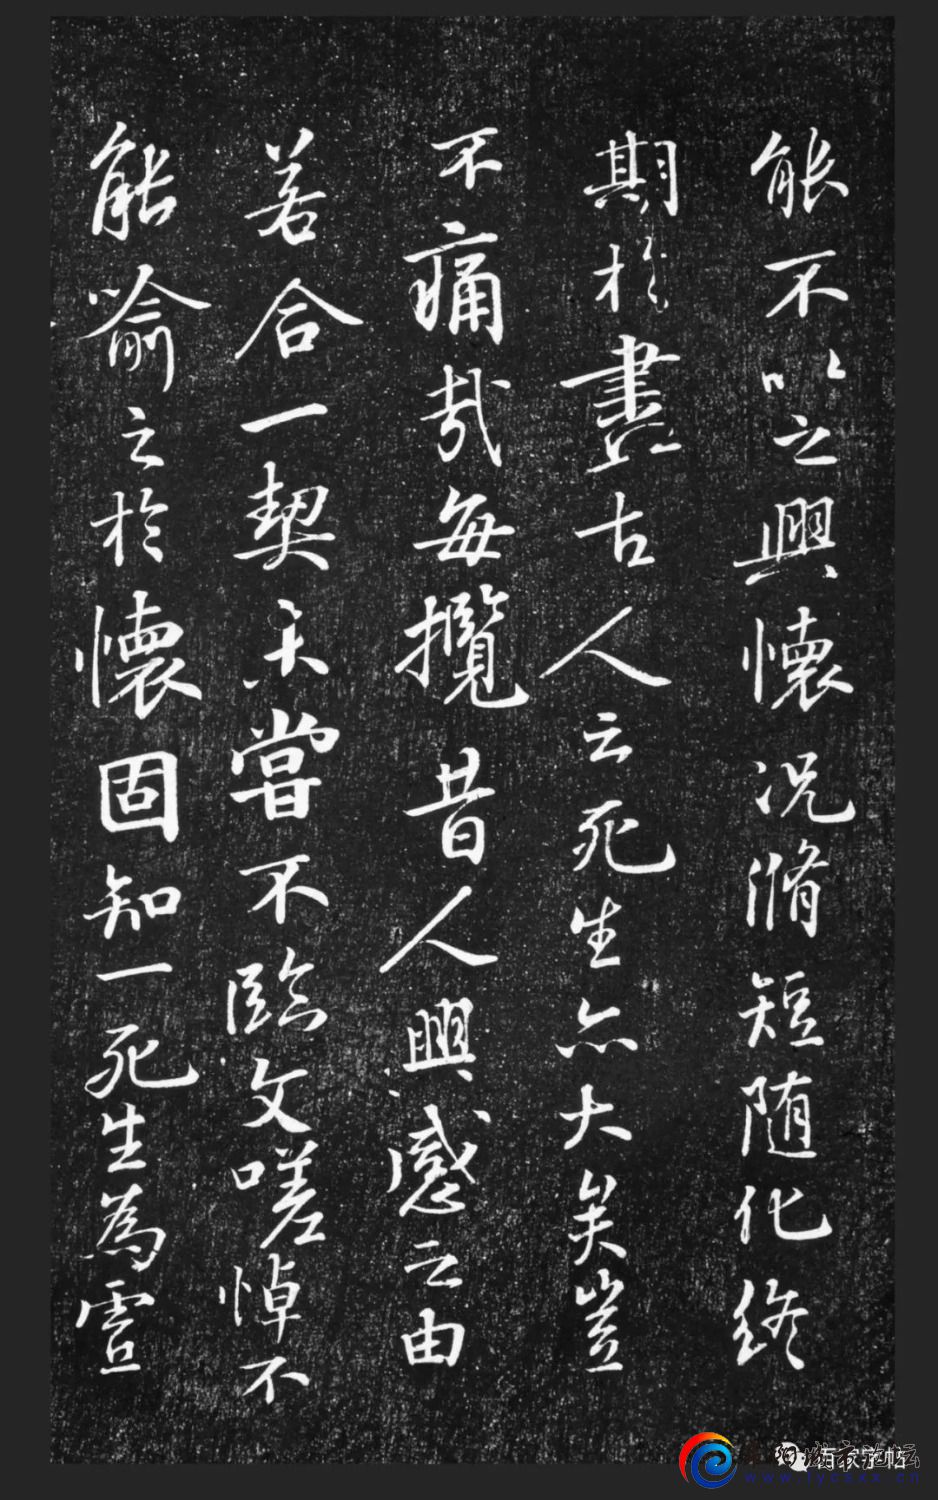 能不以之興懷况脩短随化終
期於盡古人云死生亦大矣豈
不痛哉每攬昔人興感之由
若合一契未嘗不臨文嗟悼不
能喻之於懷固知一死生為虛
www.tycsxx.cn